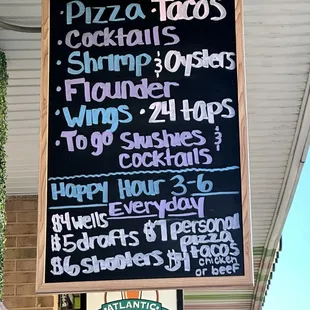 · Pizza Tacos
· Cocktails
· Shrimp & Oysters
· Flounder
· Wings · 24 taps
· To go Slushies &
cocktails
Happy Hour 3-6
Everyday
$4 wells
$5 drafts
$6 shooters
$7 personal
pizza
$4 tacos
chicken
or beef
ATLANTIC